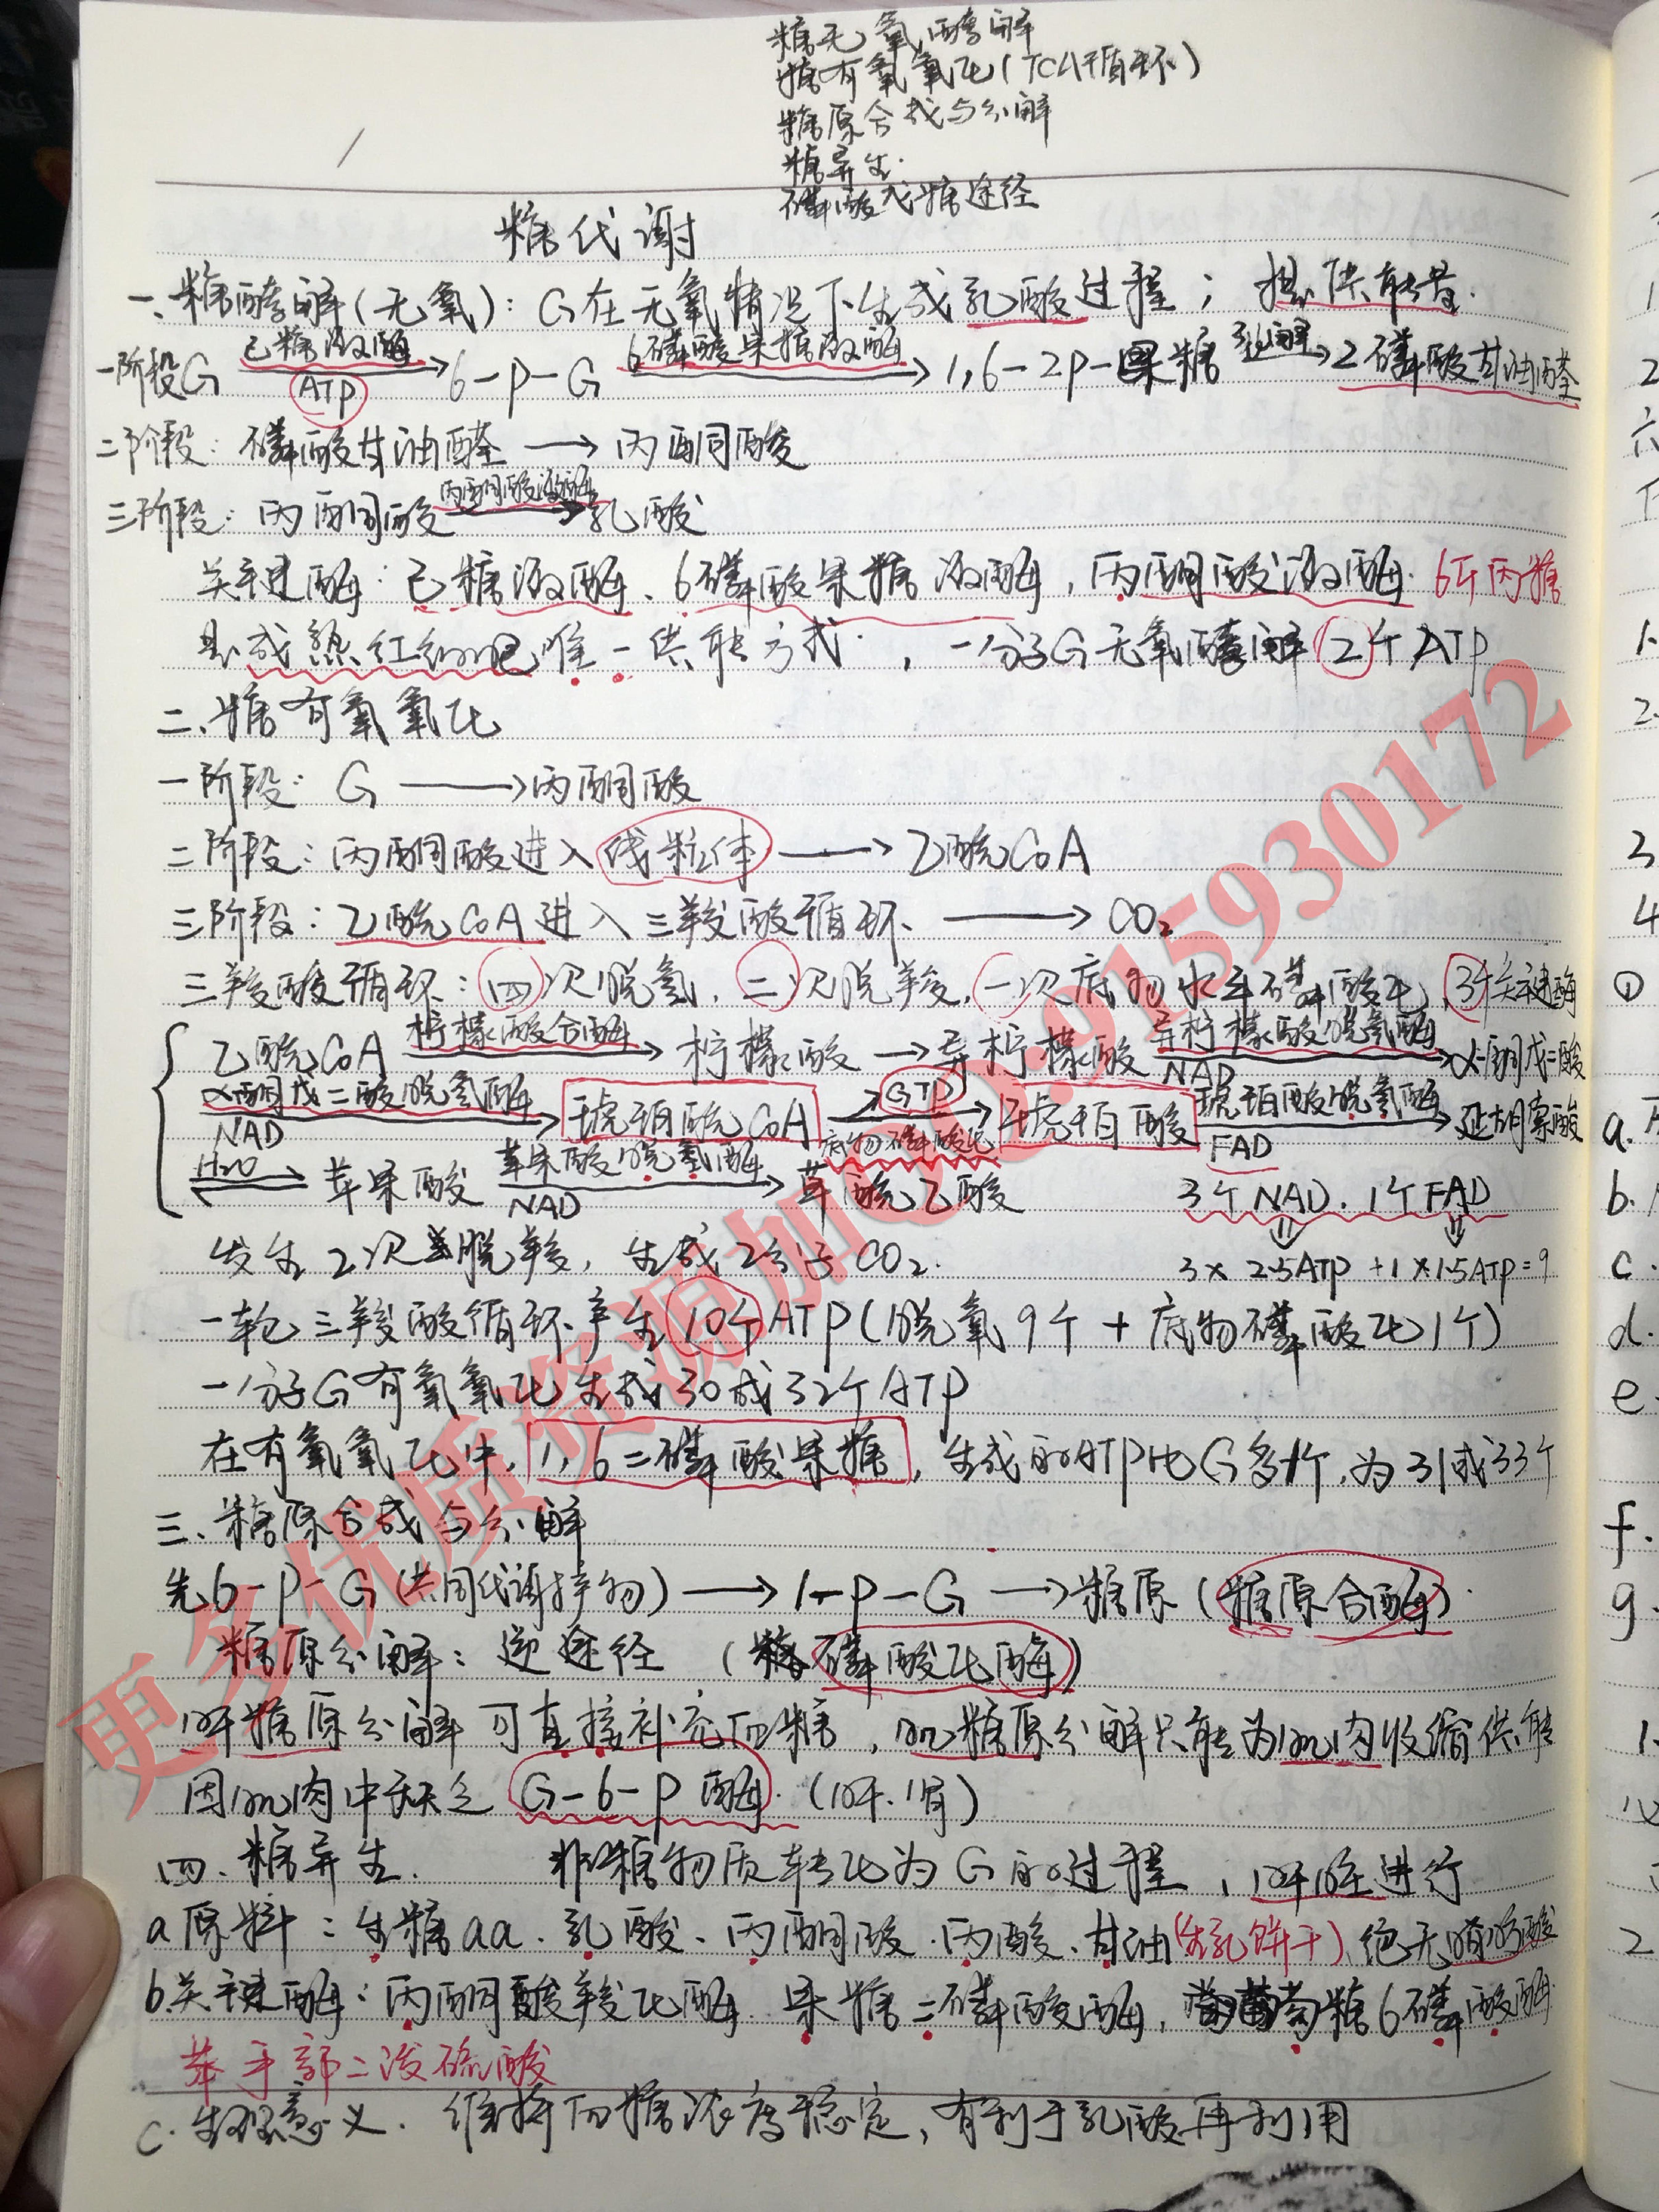 糖无氧酵解
糖有氧氧化(TCA循环)
糖原合成与分解
糖异生.
磷酸戊糖途径
糖代谢
一、糖酵解(无氧): G在无氧情况下生成乳酸过程; 提供能量.
一阶段G 己糖激酶 ATP → 6-P-G 6磷酸果糖激酶 → 1,6-2P-果糖 裂解 → 2磷酸甘油醛
二阶段: 磷酸甘油醛 → 丙酮酸
三阶段: 丙酮酸 丙酮酸激酶 → 乳酸
关键酶: 己糖激酶、6磷酸果糖激酶, 丙酮酸激酶. 6斤丙糖
是成熟红细胞唯一供能方式. , 一分子G无氧酵解2个ATP
二、糖有氧氧化
一阶段: G → 丙酮酸
二阶段: 丙酮酸进入线粒体 → 乙酰CoA
三阶段: 乙酰CoA进入三羧酸循环 → CO₂
三羧酸循环: 四次脱氢, 二次脱羧, 一次底物水平磷酸化, 3个关键酶
乙酰CoA 柠檬酸合酶 → 柠檬酸 → 异柠檬酸 异柠檬酸脱氢酶 NAD → α-酮戊二酸
α-酮戊二酸脱氢酶 NAD → 琥珀酰CoA GTP 底物磷酸化 → 琥珀酸 琥珀酸脱氢酶 FAD → 延胡索酸
H₂O ⇌ 苹果酸 苹果酸脱氢酶 NAD → 草酰乙酸 3个NAD. 1个FAD
发生2次脱羧, 生成2分子CO₂. 3×2.5ATP+1×1.5ATP=9
一轮三羧酸循环产生10个ATP(脱氧9个+底物磷酸化1个)
一分子G有氧氧化生成30或32个ATP
在有氧氧化中, 1,6二磷酸果糖, 生成的ATP比G多1个, 为31或33个
三、糖原合成与分解
先6-P-G(共同代谢产物) → 1-P-G → 糖原(糖原合酶).
糖原分解: 逆途径 (磷酸化酶)
肝糖原分解可直接补充血糖, 肌糖原分解只能为肌肉收缩供能
因肌肉中缺乏G-6-P酶. (肝.肾)
四、糖异生. 非糖物质转化为G的过程, 肝脏进行
a原料: 生糖aa. 乳酸、丙酮酸.丙酸.甘油(生乳饼干).绝无脂肪酸
b.关键酶: 丙酮酸羧化酶. 果糖二磷酸酶, 葡萄糖6磷酸酶.
苹手部二泼硫酸
c.生理意义. 维持血糖浓度稳定, 有利于乳酸再利用
更多优质资源加QQ915930172